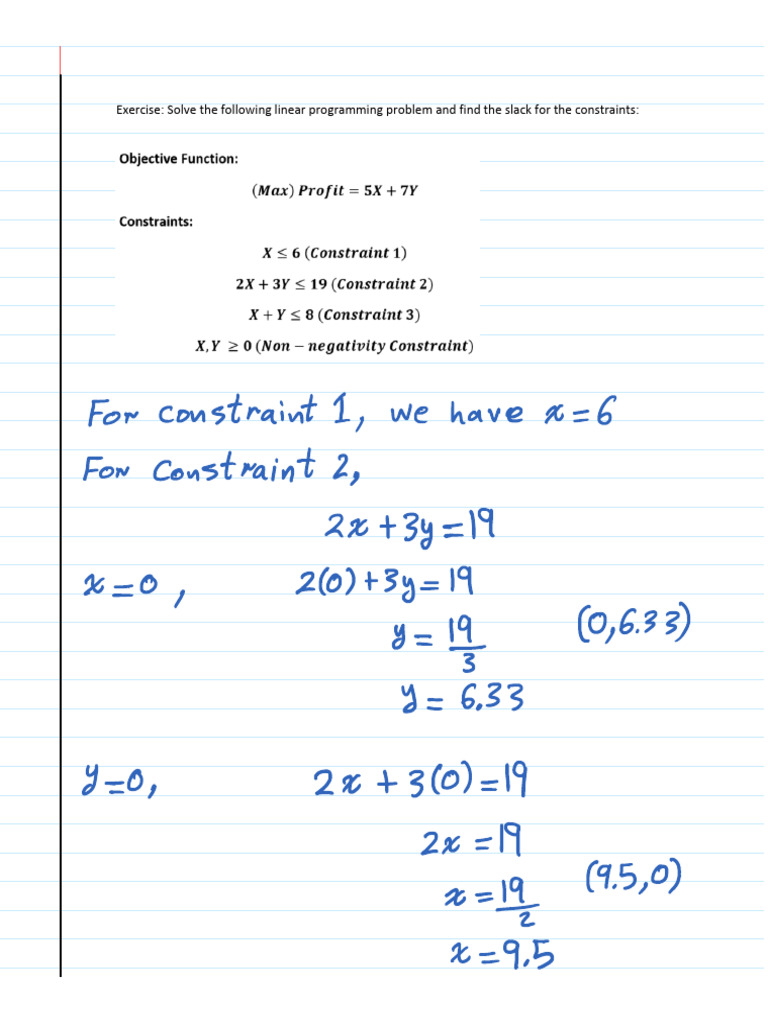 Exercise: Solve the following linear programming problem and find the slack for the constraints:
Objective Function:
(Max) Profit = 5X + 7Y
Constraints:
X ≤ 6 (Constraint 1)
2X + 3Y ≤ 19 (Constraint 2)
X + Y ≤ 8 (Constraint 3)
X, Y ≥ 0 (Non − negativity Constraint)
For constraint 1, we have x = 6
For Constraint 2,
2x + 3y = 19
x = 0, 2(0) + 3y = 19
y = 19/3 (0, 6.33)
y = 6.33
y = 0, 2x + 3(0) = 19
2x = 19
x = 19/2 (9.5, 0)
x = 9.5